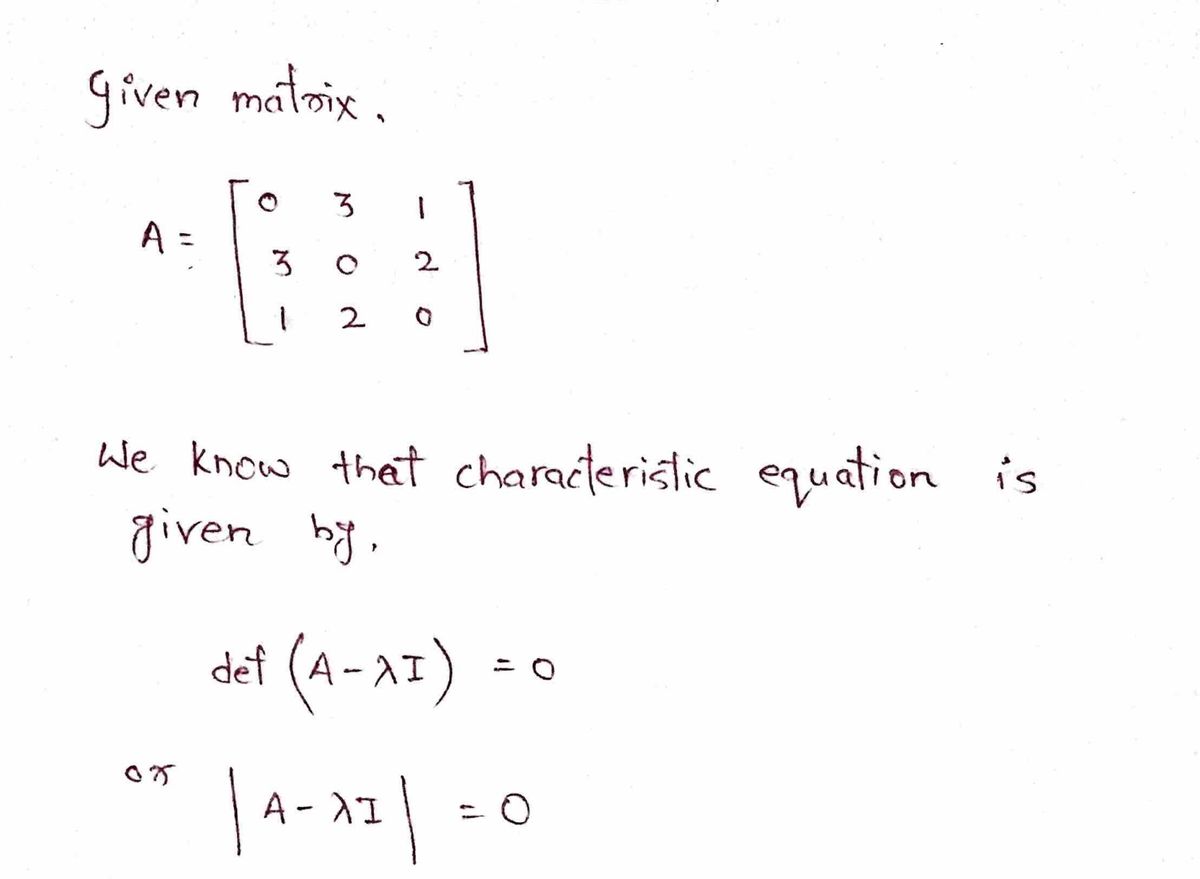 Given matrix.
A = [ 0 3 1
3 0 2
1 2 0 ]
We know that characteristic equation is
given by,
det (A - λI) = 0
or | A - λI | = 0